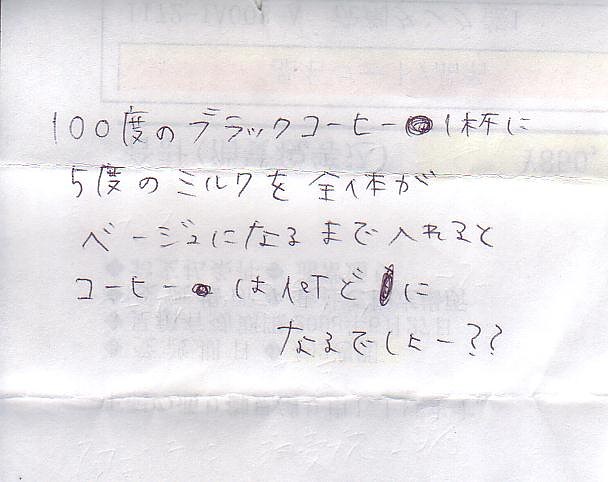 100度のブラックコーヒー1杯に
5度のミルクを全体が
ベージュになるまで入れると
コーヒーは何度に
なるでしょー??